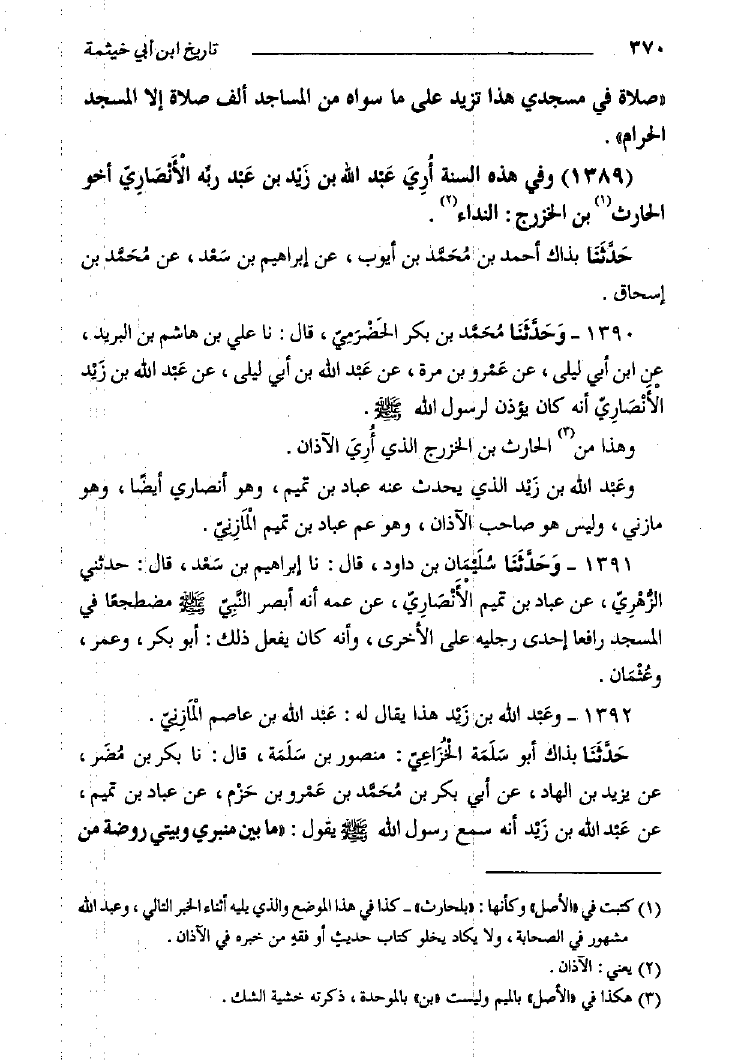 ٣٧٠ تاريخ ابن أبي خيثمة
«صلاة في مسجدي هذا تزيد على ما سواه من المساجد ألف صلاة إلا المسجد
الحرام» .
(١٣٨٩) وفي هذه السنة أُرِيَ عَبْد الله بن زَيْد بن عَبْد ربِّه الْأَنْصَارِيّ أخو
الحارث(١) بن الخزرج : النداء(٢) .
حَدَّثَنَا بذاك أحمد بن مُحَمَّد بن أيوب ، عن إبراهيم بن سَعْد ، عن مُحَمَّد بن
إسحاق .
١٣٩٠ ـ وَحَدَّثَنَا مُحَمَّد بن بكر الحَضْرَمِيّ ، قال : نا علي بن هاشم بن البريد ،
عن ابن أبي ليلى ، عن عَمْرو بن مرة ، عن عَبْد الله بن أبي ليلى ، عن عَبْد الله بن زَيْد
الْأَنْصَارِيّ أنه كان يؤذن لرسول الله ﷺ .
وهذا من(٣) الحارث بن الخزرج الذي أُرِيَ الآذان .
وعَبْد الله بن زَيْد الذي يحدث عنه عباد بن تميم ، وهو أنصاري أيضًا ، وهو
مازني ، وليس هو صاحب الآذان ، وهو عم عباد بن تميم الْمَازِنِيّ .
١٣٩١ ـ وَحَدَّثَنَا سُلَيْمَان بن داود ، قال : نا إبراهيم بن سَعْد ، قال : حدثني
الزُّهْرِيّ ، عن عباد بن تميم الْأَنْصَارِيّ ، عن عمه أنه أبصر النَّبِيّ ﷺ مضطجعًا في
المسجد رافعا إحدى رجليه على الأخرى ، وأنه كان يفعل ذلك : أبو بكر ، وعمر ،
وعُثْمَان .
١٣٩٢ ـ وعَبْد الله بن زَيْد هذا يقال له : عَبْد الله بن عاصم الْمَازِنِيّ .
حَدَّثَنَا بذاك أبو سَلَمَة الْخُزَاعِيّ : منصور بن سَلَمَة ، قال : نا بكر بن مُضَر ،
عن يزيد بن الهاد ، عن أبي بكر بن مُحَمَّد بن عَمْرو بن حَزْم ، عن عباد بن تميم ،
عن عَبْد الله بن زَيْد أنه سمع رسول الله ﷺ يقول : «ما بين منبري وبيتي روضة من
(١) كتبت في «الأصل» وكأنها : «بلحارث» ـ كذا في هذا الموضع والذي يليه أثناء الخبر التالي ، وعبد الله
مشهور في الصحابة ، ولا يكاد يخلو كتاب حديثٍ أو فقهٍ من خبره في الآذان .
(٢) يعني : الآذان .
(٣) هكذا في «الأصل» بالميم وليست «بن» بالموحدة ، ذكرته خشية الشك .